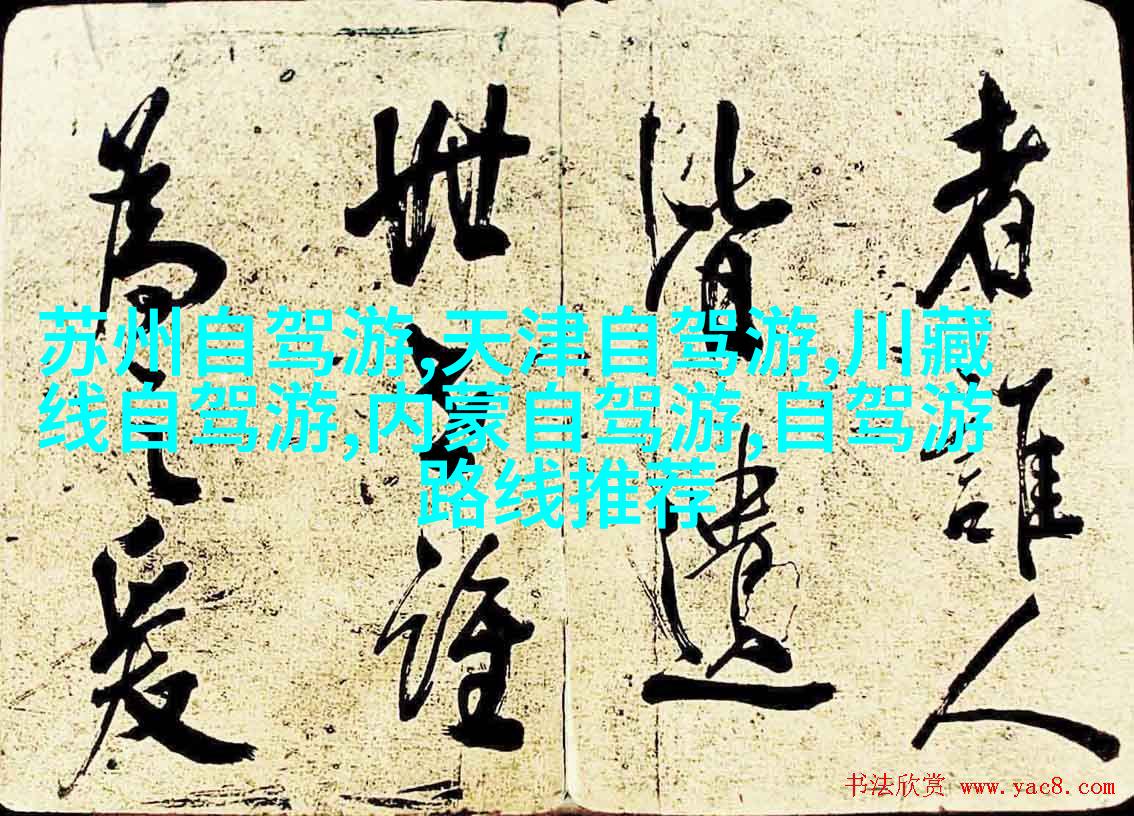 者誰人
皆遺
世誰
為之
苏州自驾游,天津自驾游,川藏
线自驾游,内蒙自驾游,自驾游
路线推荐
书法欣赏 www.yac8.com